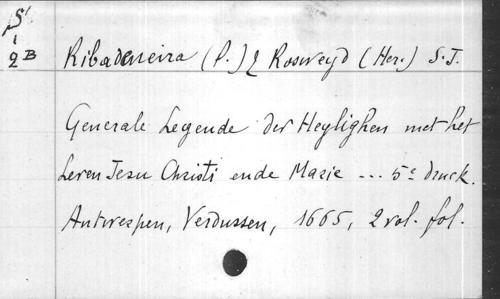 S
1
2 B
Ribadeneira (P.) & Rosweyd (Her.) S.J.
Generale Legende der Heylighen met het
Leven Jesu Christi ende Marie ... 5e druck.
Antwerpen, Verdussen, 1665, 2 vol. fol.